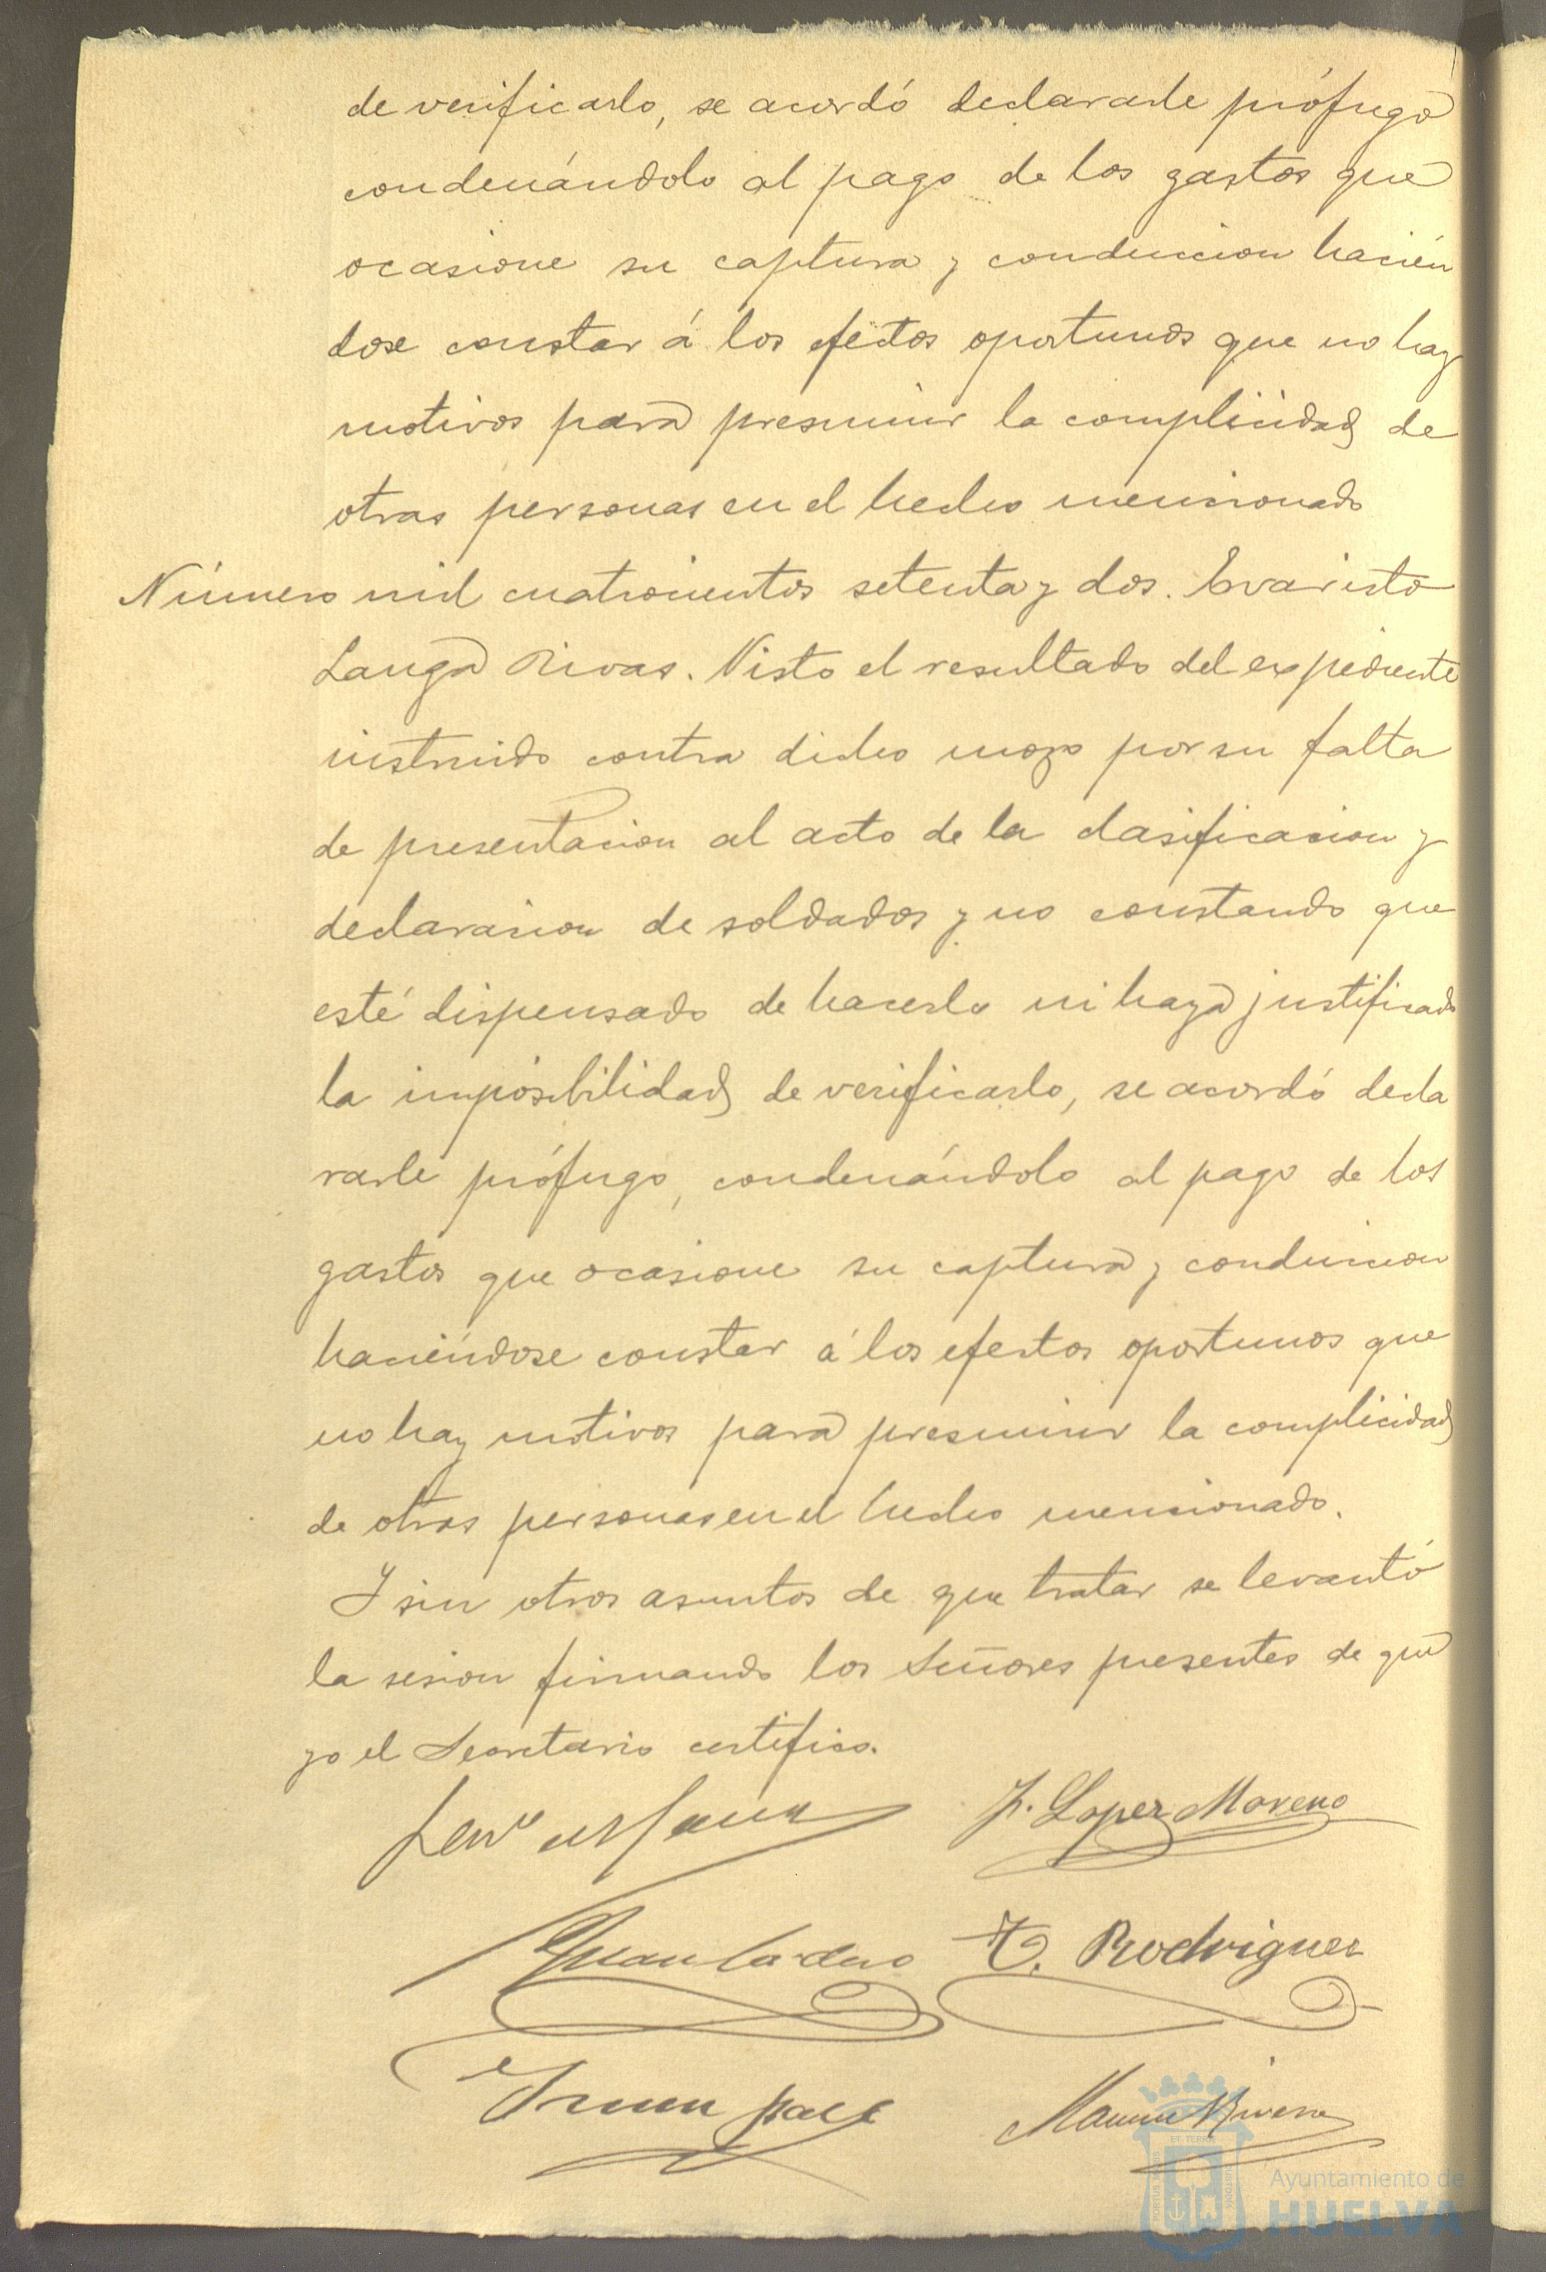 de verificarlo, se acordó declararle prófugo
condenándolo al pago de los gastos que
ocasione su captura y conduccion hacién
dose constar á los efectos oportunos que no hay
motivos para presumir la complicidad de
otras personas en el hecho mencionado
Número mil cuatrocientos setenta y dos. Evaristo
Langa Rivas. Visto el resultado del expediente
instruido contra dicho mozo por su falta
de presentacion al acto de la clasificacion y
declaracion de soldados y no constando que
esté dispensado de hacerlo ni haya justificado
la imposibilidad de verificarlo, se acordó decla
rarle prófugo, condenándolo al pago de los
gastos que ocasione su captura y conduccion
haciéndose constar á los efectos oportunos que
no hay motivos para presumir la complicidad
de otras personas en el hecho mencionado.
Y sin otros asuntos de que tratar se levantó
la sesion firmando los Señores presentes de que
yo el Secretario certifico.
J. Lopez Moreno
Juan Cordero
T. Rodriguez
Juan
Manuel Rivera
Ayuntamiento de
HUELVA